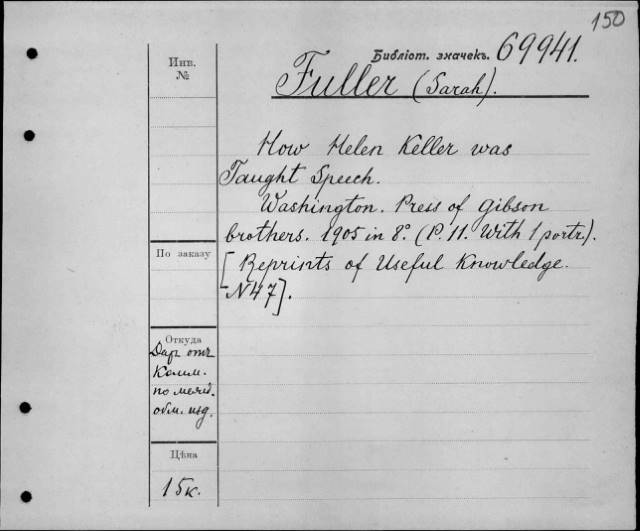 150
Библіот. значекъ. 69941.
Инв.
№
Fuller (Sarah).
How Helen Keller was
Taught Speech.
Washington. Press of Gibson
brothers. 1905 in 8°. (P. 11. With 1 portr.).
[Reprints of Useful Knowledge.
N47].
По заказу
Откуда
Даръ отъ
Комм.
по межд.
обм. изд.
Цѣна
15к.